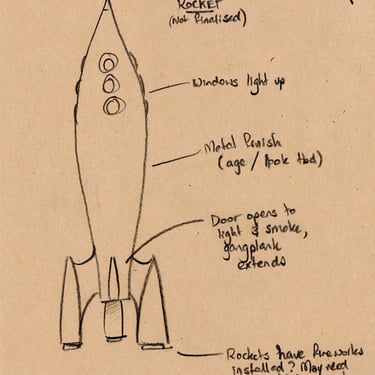 ROCKET
(Not finalised)
Windows light up
Metal Finish
(age / look tbd)
Door opens to
light & smoke,
gangplank
extends
Rockets have fireworks
installed? May need